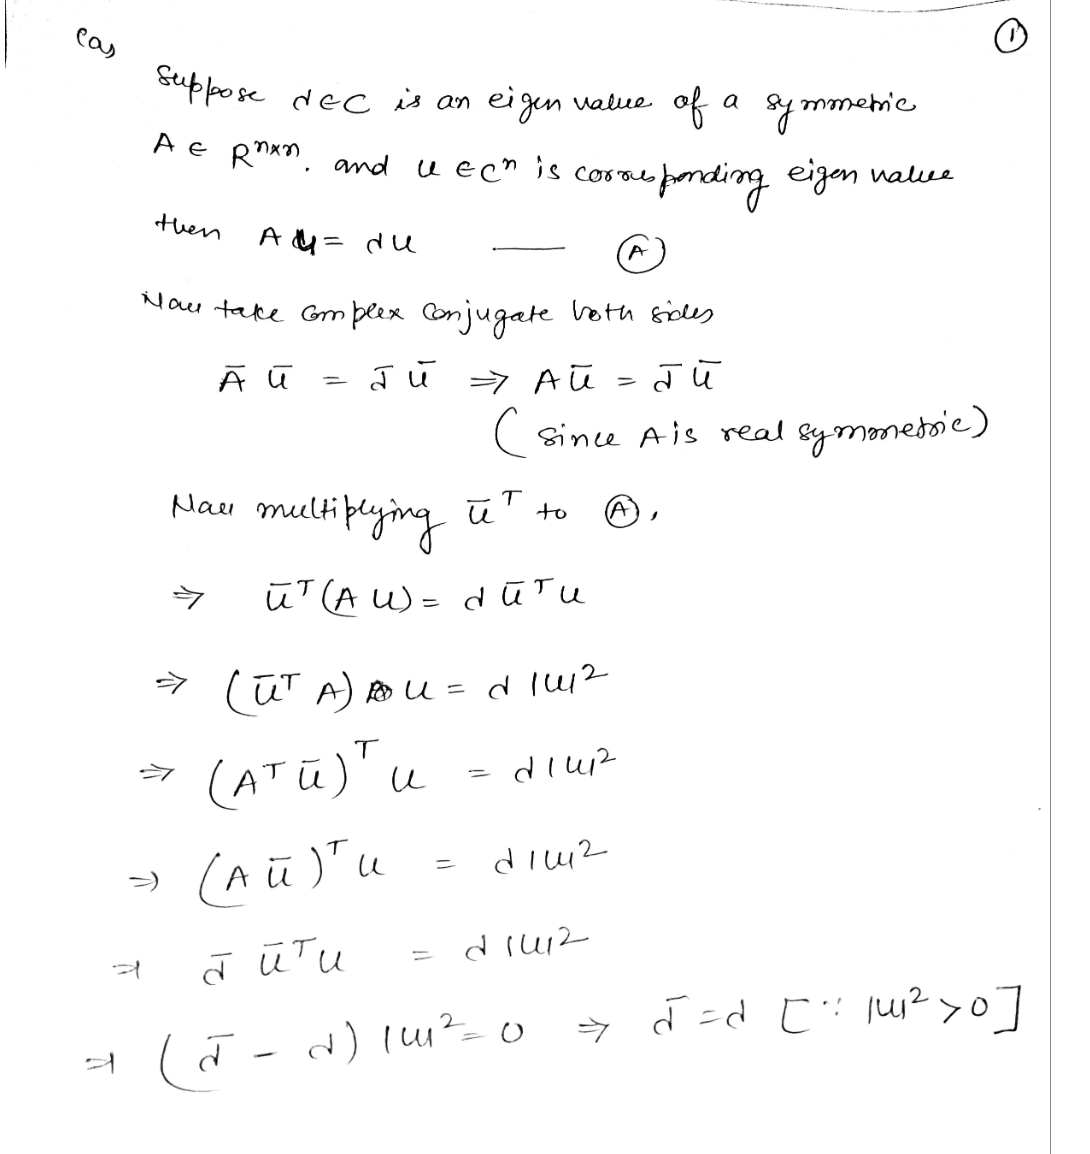 ①
(a)
Suppose d ∈ C is an eigen value of a symmetric
A ∈ R^{n×n}. and u ∈ C^n is corresponding eigen value
then A u = d u —— Ⓐ
Now take complex conjugate both sides
Ā ū = d̄ ū ⇒ A ū = d̄ ū
(since A is real symmetric)
Now multiplying ū^T to Ⓐ,
⇒ ū^T (A u) = d ū^T u
⇒ (ū^T A) u = d |u|^2
⇒ (A^T ū)^T u = d |u|^2
⇒ (A ū)^T u = d |u|^2
⇒ d̄ ū^T u = d |u|^2
⇒ (d̄ - d) |u|^2 = 0 ⇒ d̄ = d [∵ |u|^2 > 0]